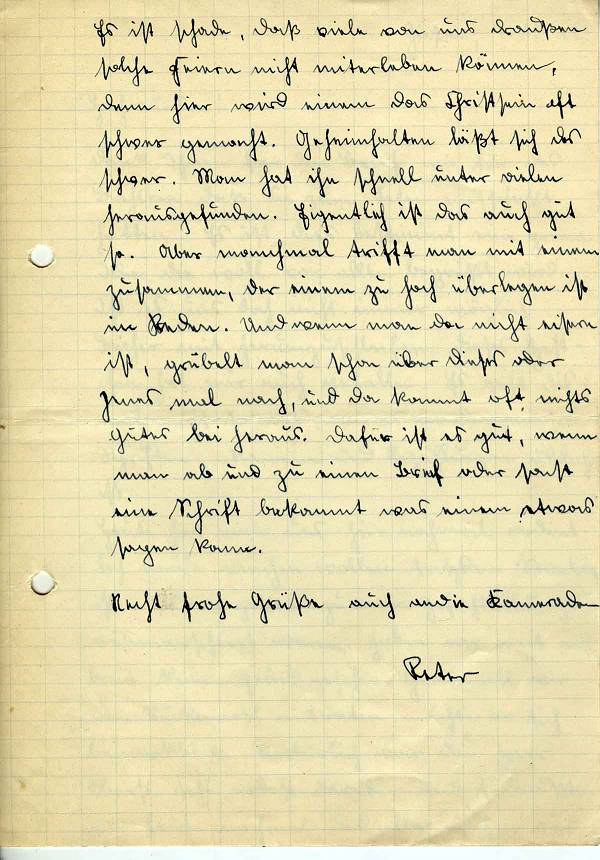 Es ist schade, daß viele von uns draußen
solche Feiern nicht miterleben können,
denn hier wird einem das Christsein oft
schwer gemacht. Geheimhalten läßt sich das
schwer. Man hat ihn schnell unter vielen
herausgefunden. Eigentlich ist das auch gut
so. Aber manchmal trifft man mit einem
zusammen, der einem zu hoch überlegen ist
im Reden. Und wenn man da nicht eisern
ist, grübelt man schon über dieses oder
jenes mal nach, und da kommt oft nichts
gutes bei heraus. Dafür ist es gut, wenn
man ab und zu einen Brief oder sonst
eine Schrift bekommt was einem etwas
sagen kann.
Recht frohe Grüße auch an die Kameraden
Peter